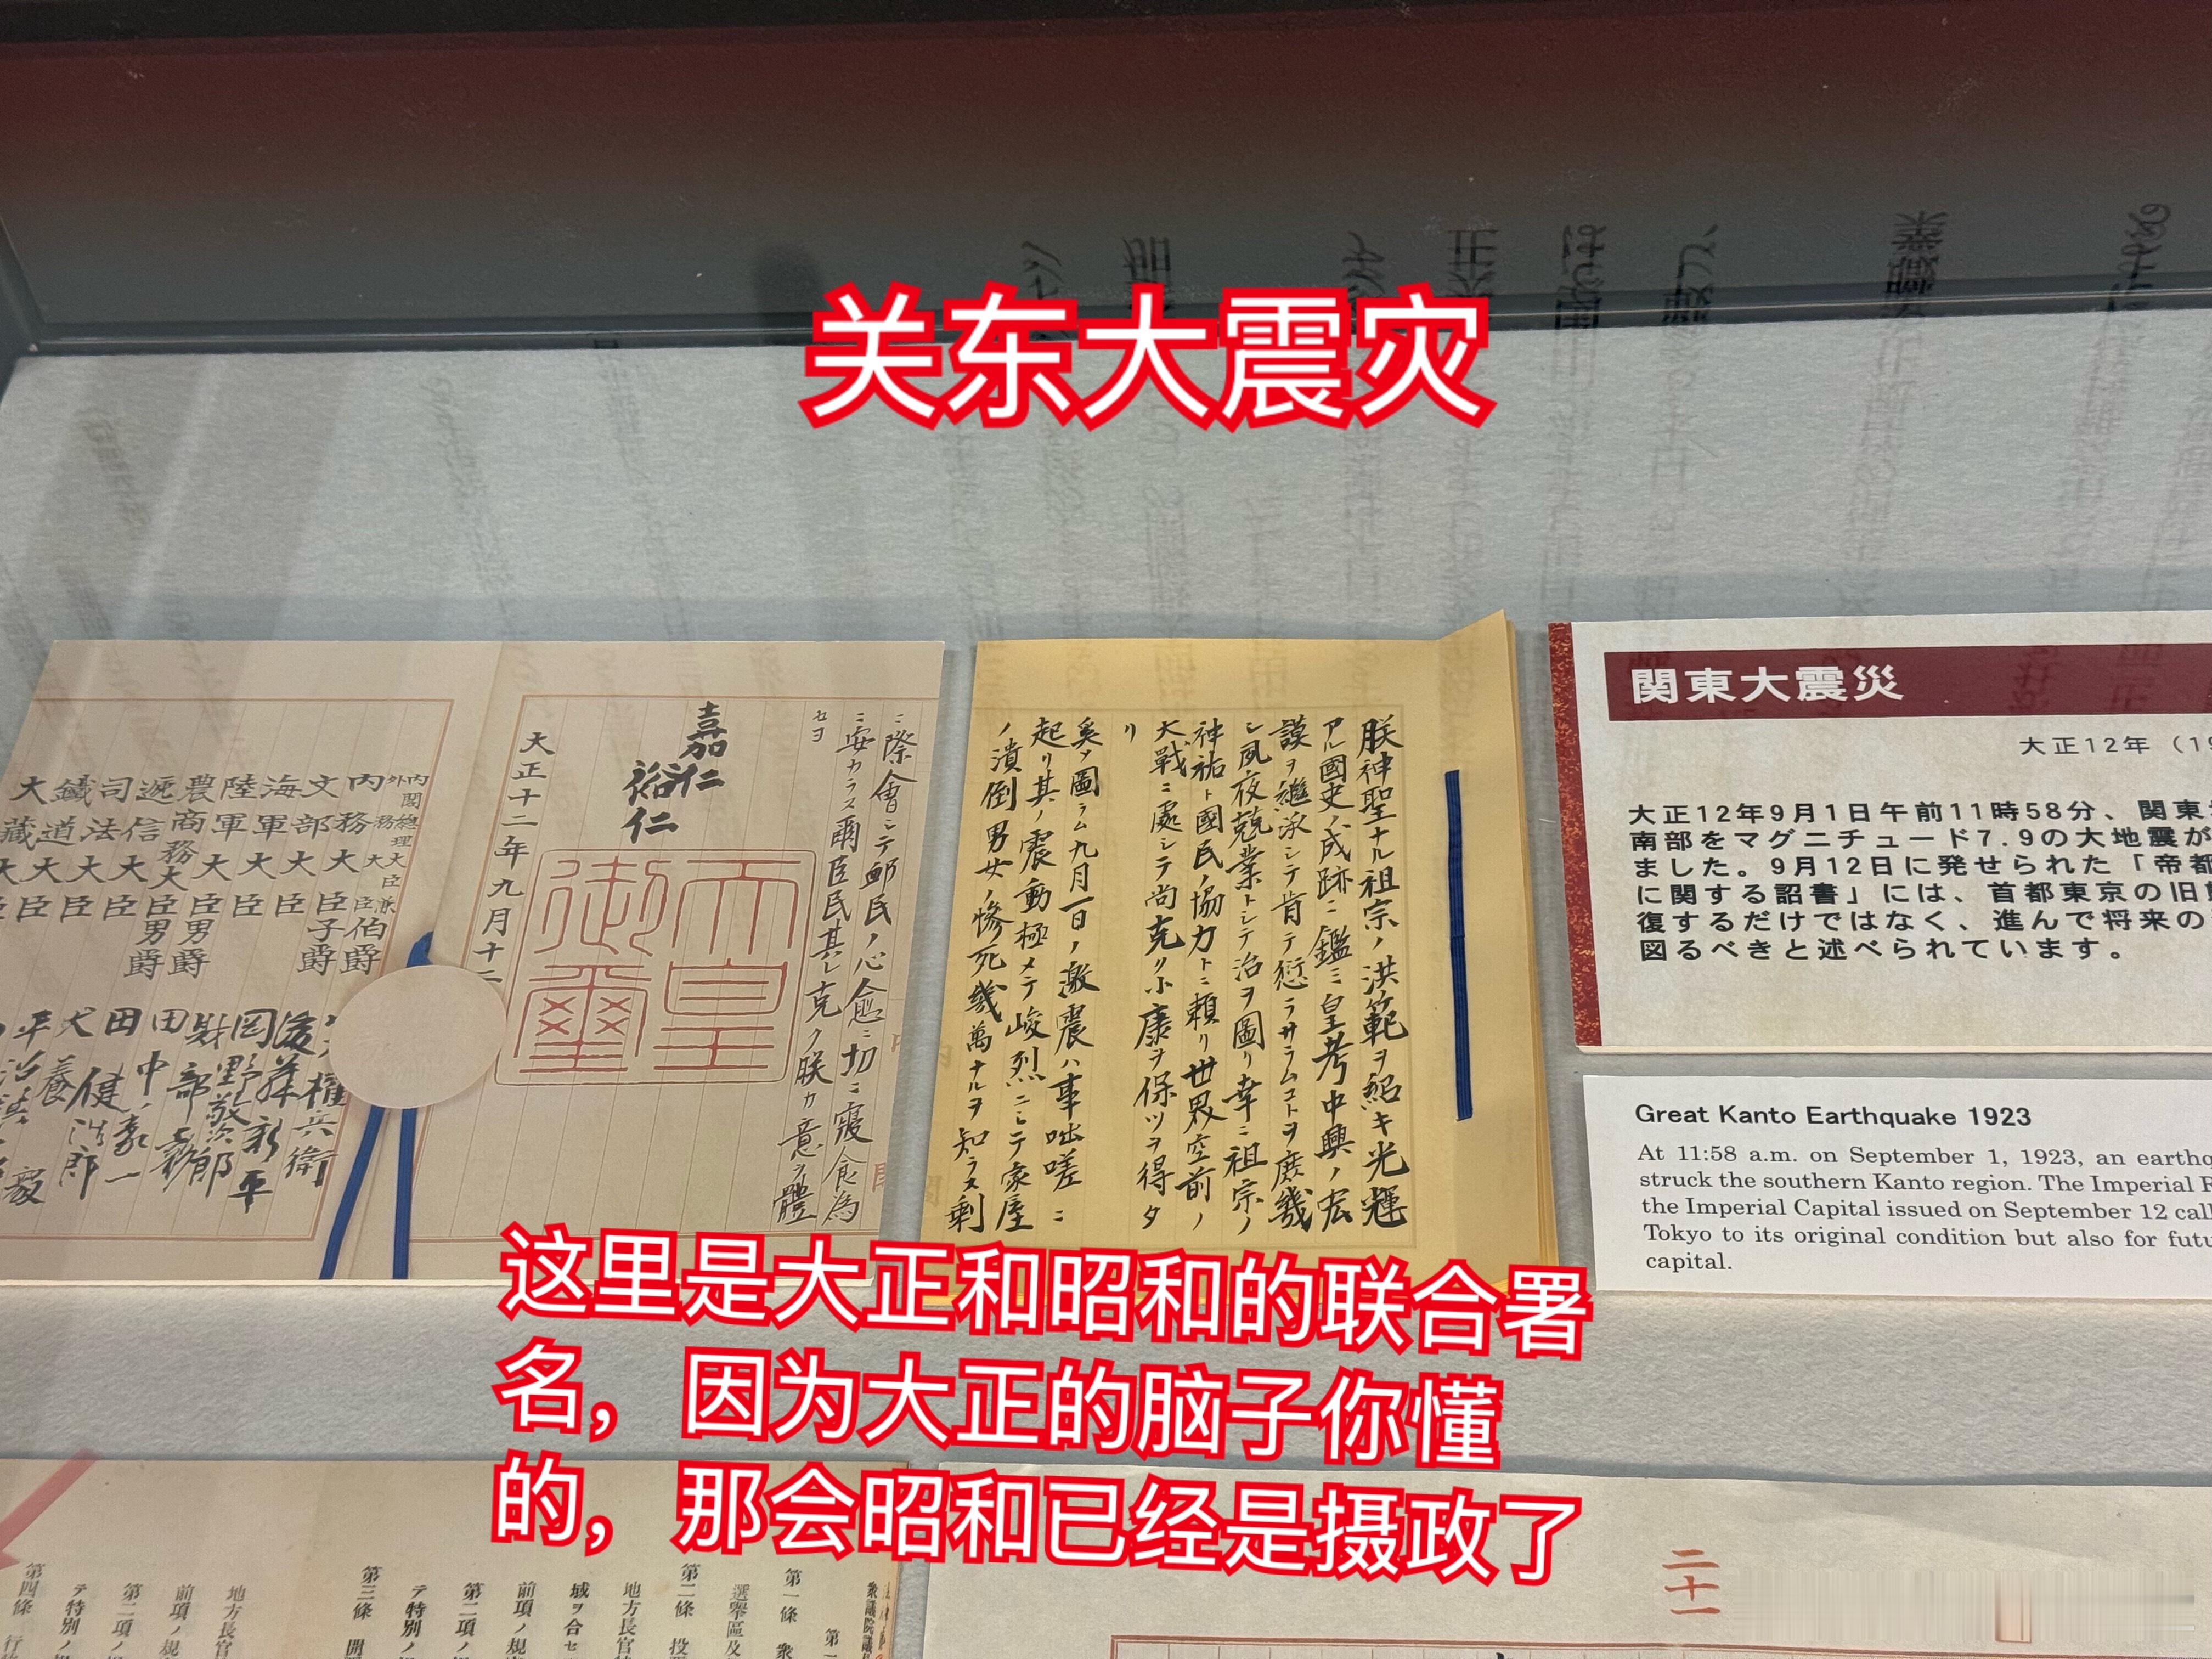 关东大震灾
関東大震災
大正12年
大正12年9月1日午前11時58分、関東
南部をマグニチュード7.9の大地震が
ました。9月12日に発せられた「帝都
に関する詔書」には、首都東京の旧
復するだけではなく、進んで将来の
図るべきと述べられています。
Great Kanto Earthquake 1923
At 11:58 a.m. on September 1, 1923, an earthq
struck the southern Kanto region. The Imperial
the Imperial Capital issued on September 12 call
Tokyo to its original condition but also for futu
capital.
朕神聖ナル祖宗ノ洪範ヲ紹キ光輝
アル國史ノ成跡ニ鑑ミ皇考中興ノ宏
謨ヲ継承シテ肯テ愆ラサラムコトヲ庶幾
シ夙夜兢業トシテ治ヲ圖リ幸ニ祖宗ノ
神祐ト國民ノ協力トニ頼リ世界空前ノ
大戰ニ處シテ尚克ク小康ヲ保ツヲ得タ
リ
奚ソ圖ラム九月一日ノ激震ハ事咄嗟ニ
起リ其ノ震動極メテ峻烈ニシテ家屋
ノ潰倒男女ノ惨死幾萬ナルヲ知ラス剰
ニ際會シテ郷民ノ心愈ニ切ニ寝食為
ニ安カラス爾臣民其レ克ク朕カ意ヲ體
セヨ
嘉仁
裕仁
天皇
御璽
大正十二年九月十二
内閣總理大臣兼
外務大臣伯爵
權兵衛
内務大臣子爵 後藤新平
文部大臣 岡野敬次郎
海軍大臣 財部彪
陸軍大臣 田中義一
農商務大臣男爵 田健治郎
遞信大臣 犬養毅
司法大臣 平沼騏一郎
鐵道大臣
大藏
这里是大正和昭和的联合署
名，因为大正的脑子你懂
的，那会昭和已经是摄政了
第一條 衆
選擧區及
第二條 投
地方長官
域ヲ合セ
前項ノ規
第二項ノ
テ特別ノ
第三條
地方長官
前項ノ規
第二項ノ
テ特別ノ
第四條 行
二十一